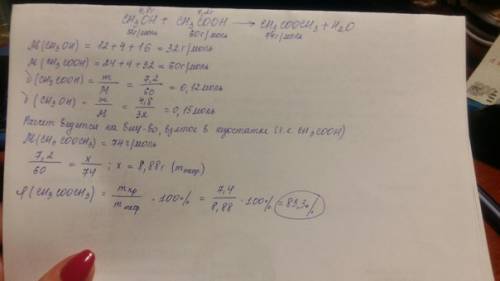 4,8г 7,2г
CH₃OH + CH₃COOH → CH₃COOCH₃ + H₂O
32г/моль 60г/моль 74г/моль
M(CH₃OH) = 12 + 4 + 16 = 32 г/моль
M(CH₃COOH) = 24 + 4 + 32 = 60г/моль
ν(CH₃COOH) = m/M = 7,2/60 = 0,12 моль
ν(CH₃OH) = m/M = 4,8/32 = 0,15 моль
Расчет ведется на вещ-во, взятое в недостатке (т.е. CH₃COOH)
M(CH₃COOCH₃) = 74 г/моль
7,2/60 = x/74 ; x = 8,88 г (mтеор)
φ(CH₃COOCH₃) = mпр/mтеор · 100% = 7,4/8,88 · 100% = 83,3%